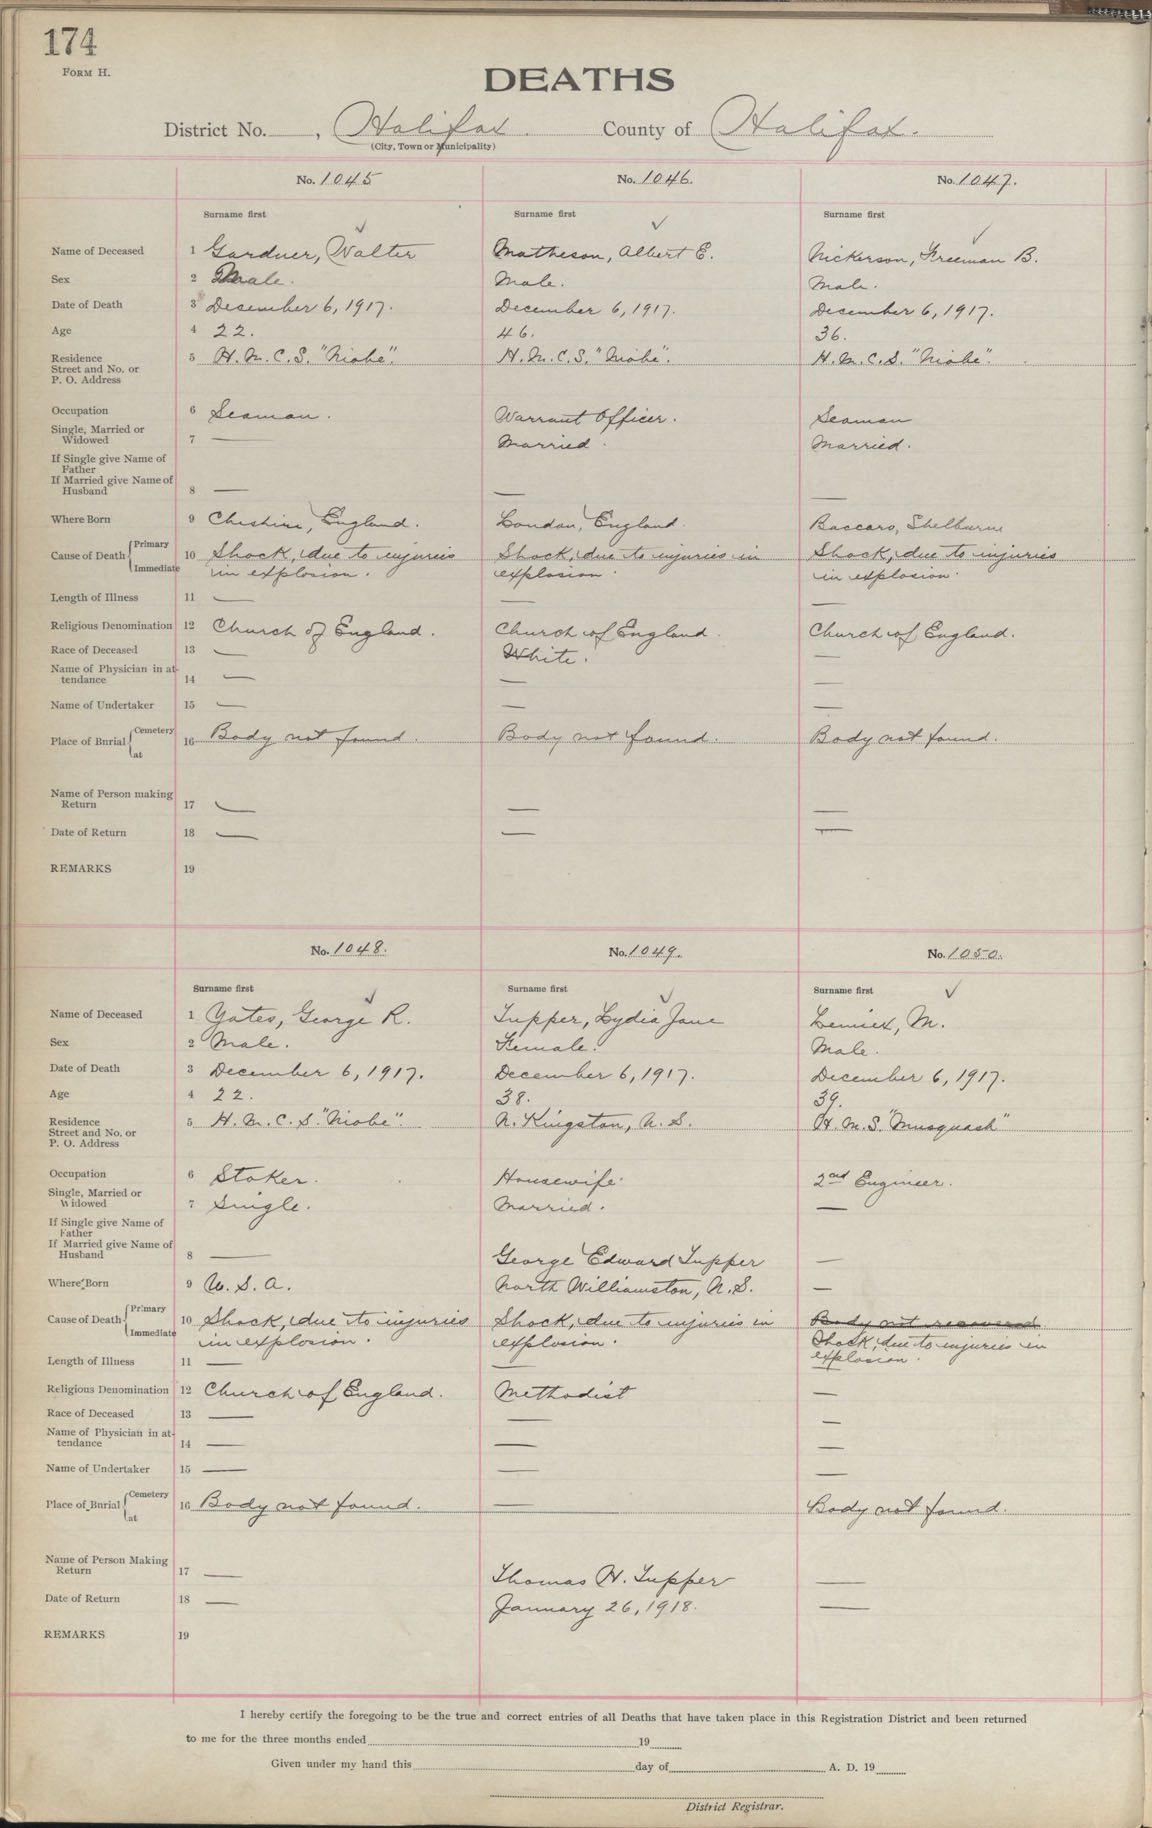 174
FORM H.
DEATHS
District No. , Halifax. County of Halifax.
(City, Town or Municipality)
No. 1045 No. 1046. No. 1047.
Surname first Surname first Surname first
Name of Deceased 1 Gardner, Walter Matheson, Albert E. Nickerson, Freeman B.
Sex 2 Male. Male. Male.
Date of Death 3 December 6, 1917. December 6, 1917. December 6, 1917.
Age 4 22. 46. 36.
Residence 5 H.M.C.S. "Niobe". H.M.C.S. "Niobe". H.M.C.S. "Niobe".
Street and No. or
P. O. Address
Occupation 6 Seaman. Warrant Officer. Seaman
Single, Married or
Widowed 7 — Married. Married.
If Single give Name of
Father
If Married give Name of
Husband 8 — — —
Where Born 9 Cheshire, England. London, England. Baccaro, Shelburne
Cause of Death { Primary
10 Shock, due to injuries Shock, due to injuries in Shock, due to injuries
Immediate in explosion. explosion. in explosion.
Length of Illness 11 — — —
Religious Denomination 12 Church of England. Church of England. Church of England.
Race of Deceased 13 — White. —
Name of Physician in at-
tendance 14 — — —
Name of Undertaker 15 — — —
Place of Burial { Cemetery
at 16 Body not found. Body not found. Body not found.
Name of Person making
Return 17 — — —
Date of Return 18 — — —
REMARKS 19
No. 1048. No. 1049. No. 1050.
Surname first Surname first Surname first
Name of Deceased 1 Yates, George R. Tupper, Lydia Jane Lemiex, M.
Sex 2 Male. Female. Male.
Date of Death 3 December 6, 1917. December 6, 1917. December 6, 1917.
Age 4 22. 38. 39.
Residence 5 H.M.C.S. "Niobe". N. Kingston, N.S. H.M.S. "Musquash"
Street and No. or
P. O. Address
Occupation 6 Stoker. Housewife. 2nd Engineer.
Single, Married or
Widowed 7 Single. Married. —
If Single give Name of
Father
If Married give Name of
Husband 8 — George Edward Tupper —
Where Born 9 U.S.A. North Williamston, N.S. —
Cause of Death { Primary
10 Shock, due to injuries Shock, due to injuries in Body not recovered
Immediate in explosion. explosion. Shock, due to injuries in
explosion.
Length of Illness 11 — —
Religious Denomination 12 Church of England. Methodist —
Race of Deceased 13 — — —
Name of Physician in at-
tendance 14 — — —
Name of Undertaker 15 — — —
Place of Burial { Cemetery
at 16 Body not found. — Body not found.
Name of Person Making
Return 17 — Thomas H. Tupper —
Date of Return 18 — January 26, 1918. —
REMARKS 19
I hereby certify the foregoing to be the true and correct entries of all Deaths that have taken place in this Registration District and been returned
to me for the three months ended 19
Given under my hand this day of A. D. 19
District Registrar.